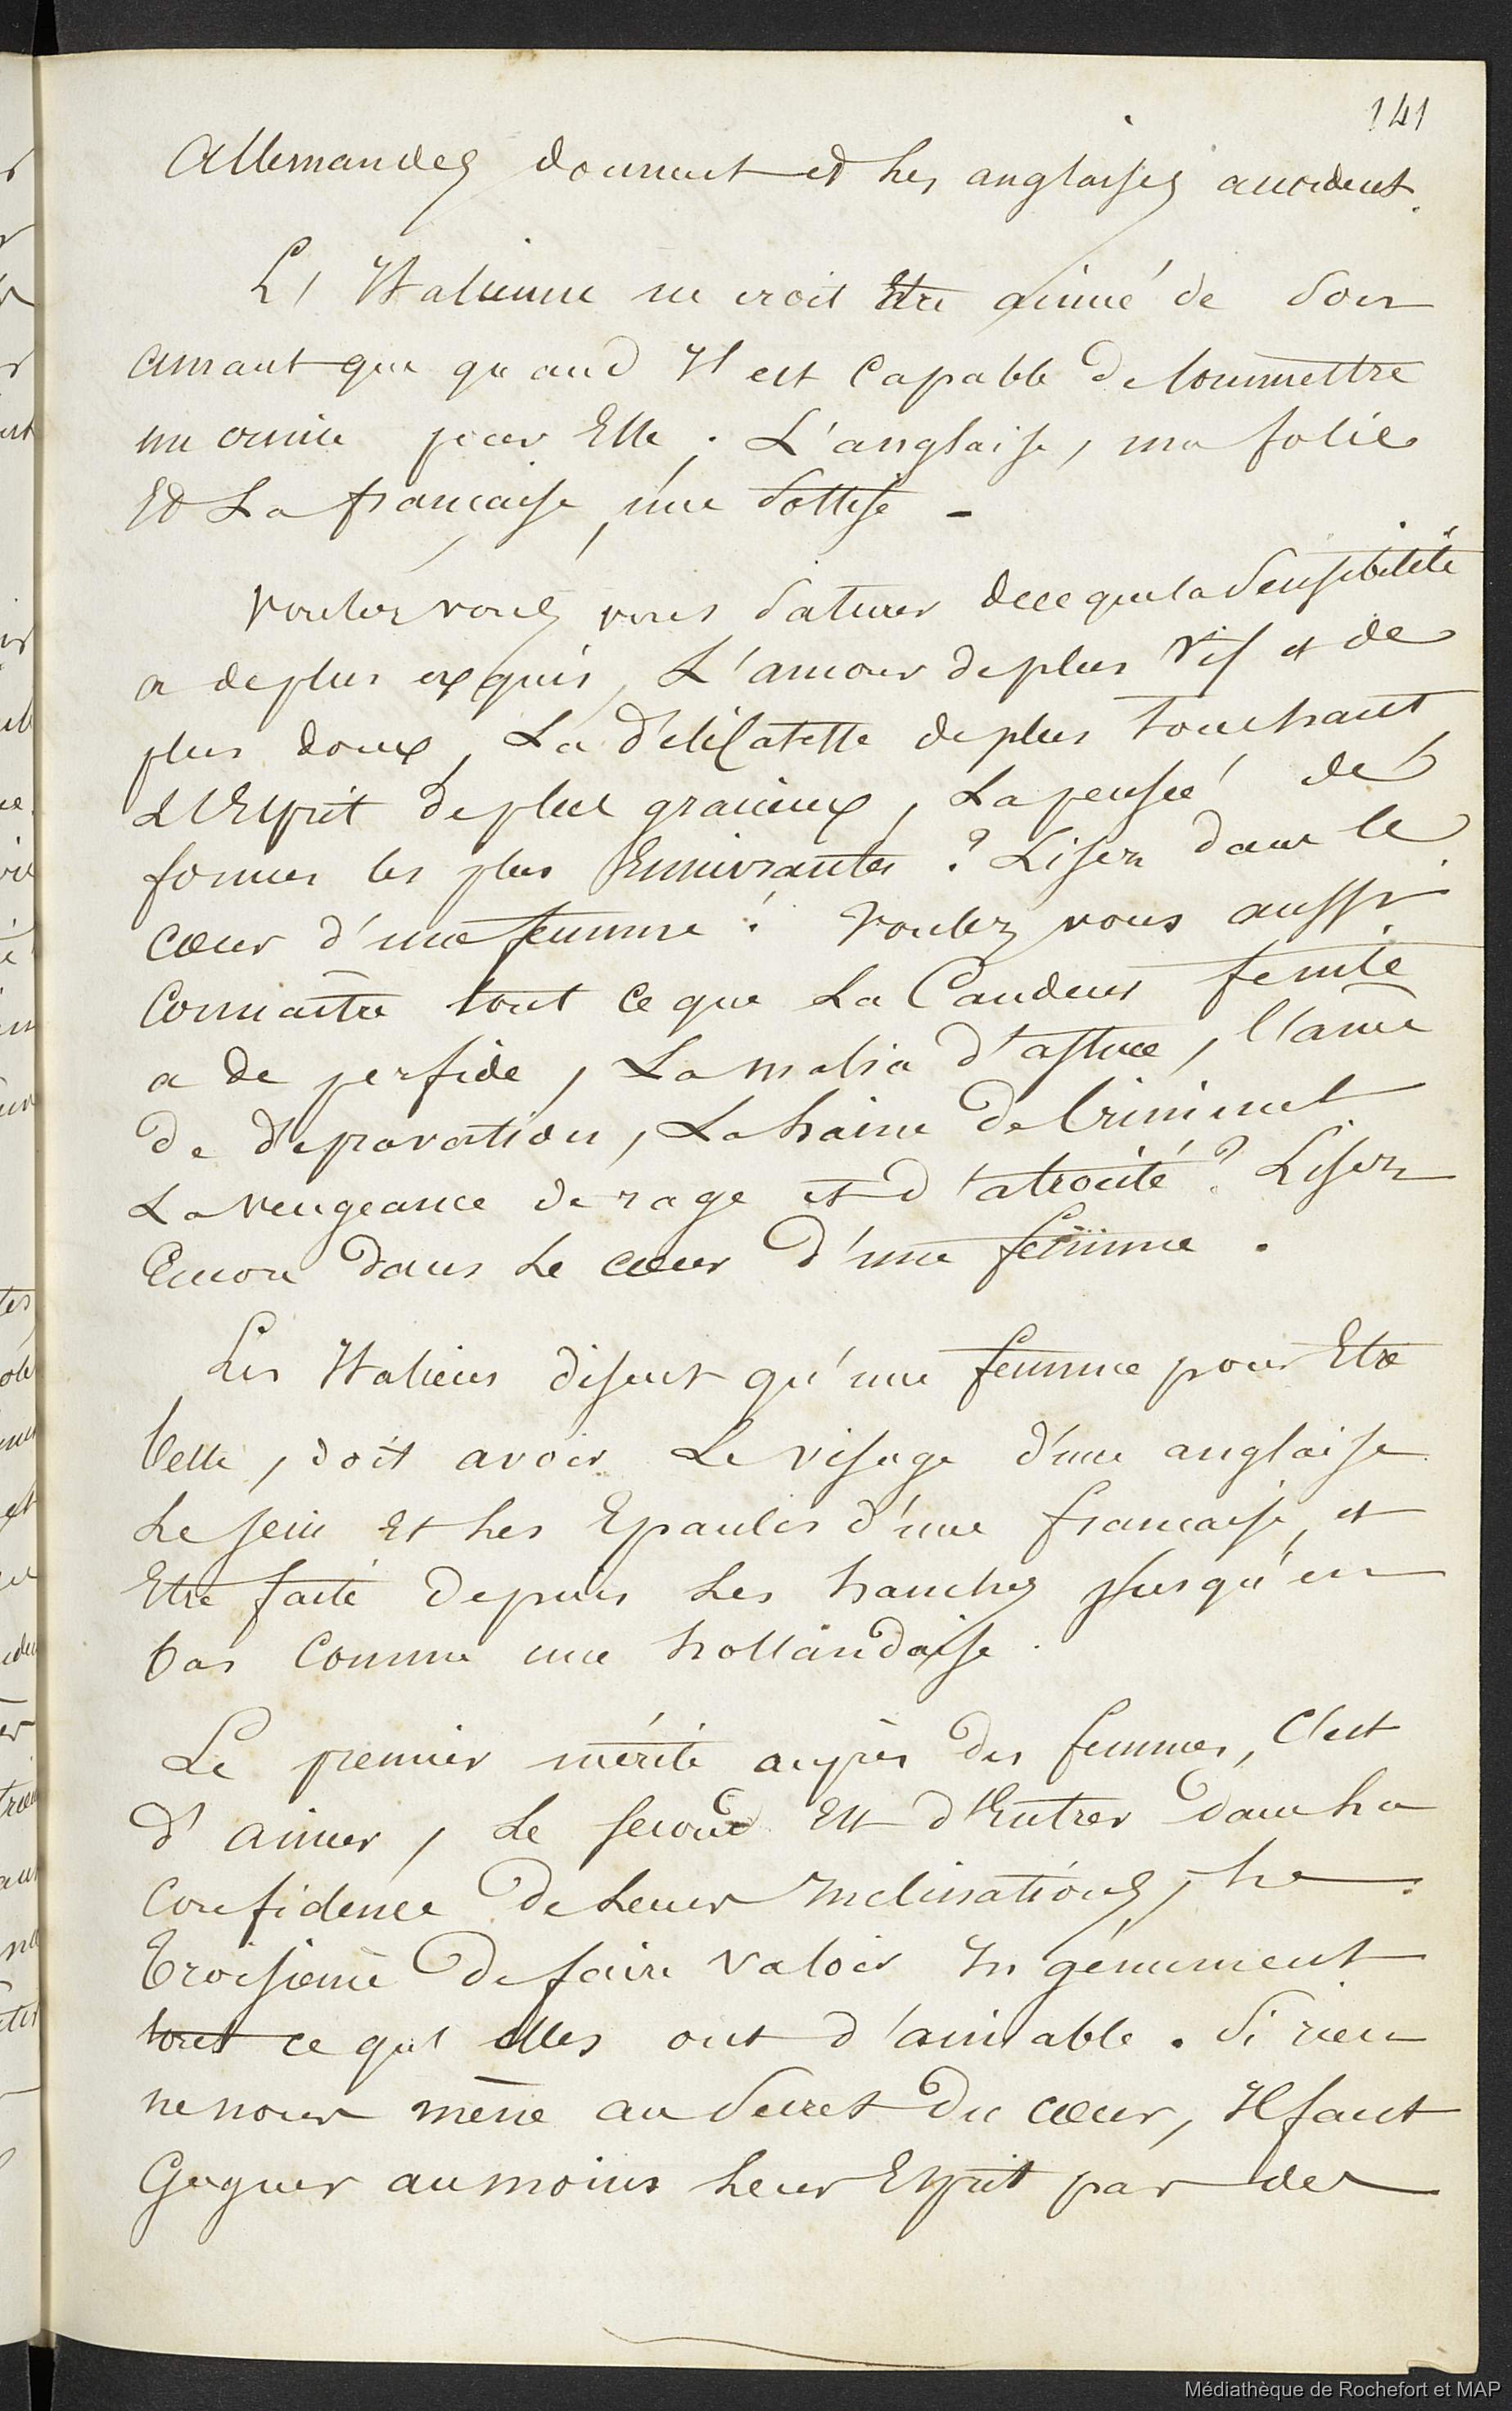 141
Allemandes donnent et les anglaises accordent.
L'Italienne ne croit Etre aimé de Son
amant que quand Il est Capable de Commettre
un crime pour Elle. L'anglaise, une folie
Et La francaise, une Sottise -
Voulez vous vous Saturer de ce que la Sensibilité
a de plus exquis, L'amour de plus Vif et de
plus doux, La Délicatesse de plus touchant,
L'Esprit de plus gracieux, La pensée de
formes les plus Ennivrantes ? Lisez dans le
cœur d'une femme ! Voulez vous aussi
Connaître tout ce que La Candeur feinte
a de perfide, La malice d'astuce, l'ame
de dépravation, La haine de Criminel
La vengeance de rage et d'atrocité ? Lisez
Encore dans Le cœur d'une femme .
Les Italiens disent qu'une femme pour Etre
belle, doit avoir Le visage d'une anglaise
Le sein Et Les Epaules d'une francaise, et
Etre faite Depuis Les hanches jusqu'en
bas Comme une hollandaise .
Le premier mérite auprès des femmes, C'est
d'aimer, Le second Est d'Entrer dans La
Confidence De Leurs Inclinations, Le
troisième De faire valoir Ingénument
tout ce qu'elles ont d'aimable . Si rien
ne nous mène au Secret Du cœur, Il faut
Gagner au moins Leur Esprit par des
Médiathèque de Rochefort et MAP